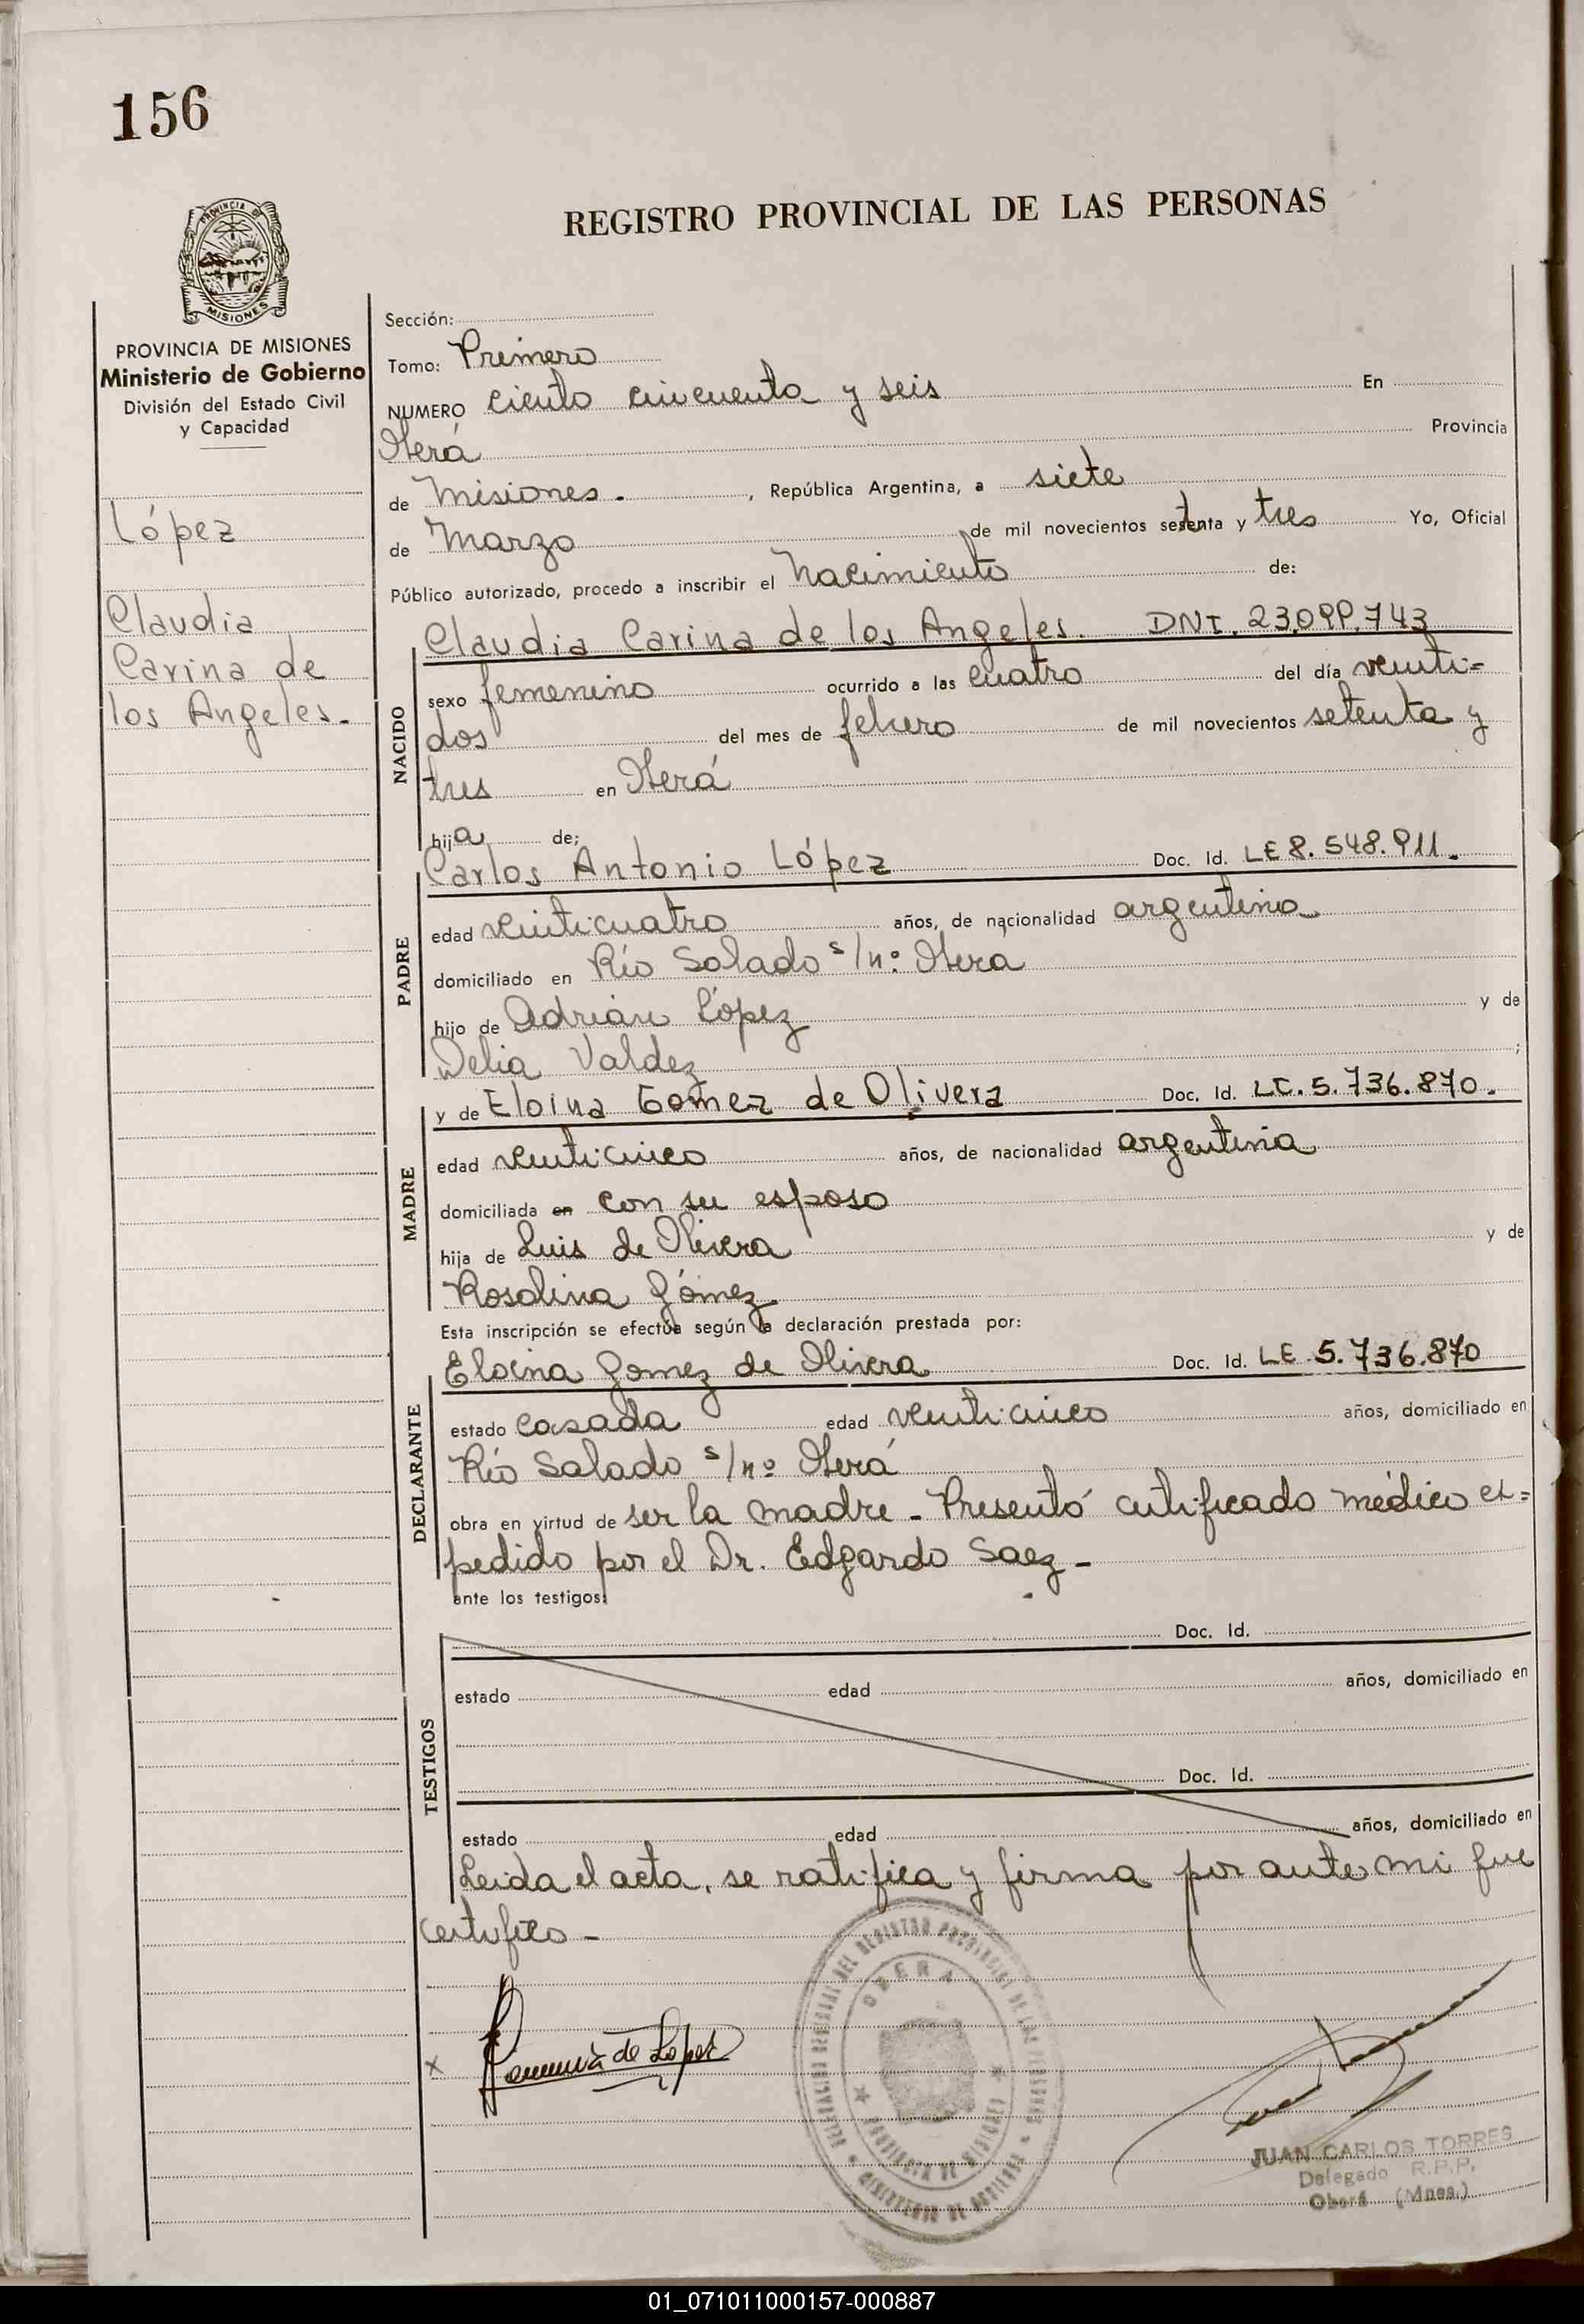 156
PROVINCIA DE
MISIONES
REGISTRO PROVINCIAL DE LAS PERSONAS
PROVINCIA DE MISIONES
Ministerio de Gobierno
División del Estado Civil
y Capacidad
López
Claudia
Carina de
los Angeles.-
Sección:
Tomo: Primero
NUMERO ciento cincuenta y seis En
Oberá Provincia
de Misiones. , República Argentina, a siete
de Marzo de mil novecientos setenta y tres Yo, Oficial
Público autorizado, procedo a inscribir el Nacimiento de:
NACIDO
Claudia Carina de los Angeles. DNI. 23.099.743
sexo femenino ocurrido a las cuatro del día veinti=
dos del mes de febrero de mil novecientos setenta y
tres en Oberá
hija de;
PADRE
Carlos Antonio López Doc. Id. LE 8.548.911.
edad veinticuatro años, de nacionalidad argentina
domiciliado en Río Salado s/nº Oberá
hijo de Adrián López y de
Delia Valdez ;
MADRE
y de Eloina Gomez de Olivera Doc. Id. LC. 5.736.870.
edad veinticinco años, de nacionalidad argentina
domiciliada en con su esposo
hija de Luis de Olivera y de
Rosalina Gómez
Esta inscripción se efectúa según la declaración prestada por:
DECLARANTE
Eloina Gomez de Olivera Doc. Id. LE 5.736.870
estado casada edad veinticinco años, domiciliado en
Río Salado s/nº Oberá
obra en virtud de ser la madre - Presentó certificado médico ex=
pedido por el Dr. Edgardo Saez -
ante los testigos:
TESTIGOS
Doc. Id.
estado edad años, domiciliado en
Doc. Id.
estado edad años, domiciliado en
Leida el acta, se ratifica y firma por ante mi que
certifico -
x de López
OBERA
PROVINCIA DE MISIONES
MINISTERIO DE GOBIERNO
JUAN CARLOS TORRES
Delegado R.P.P.
Oberá (Mnes.)
01_071011000157-000887